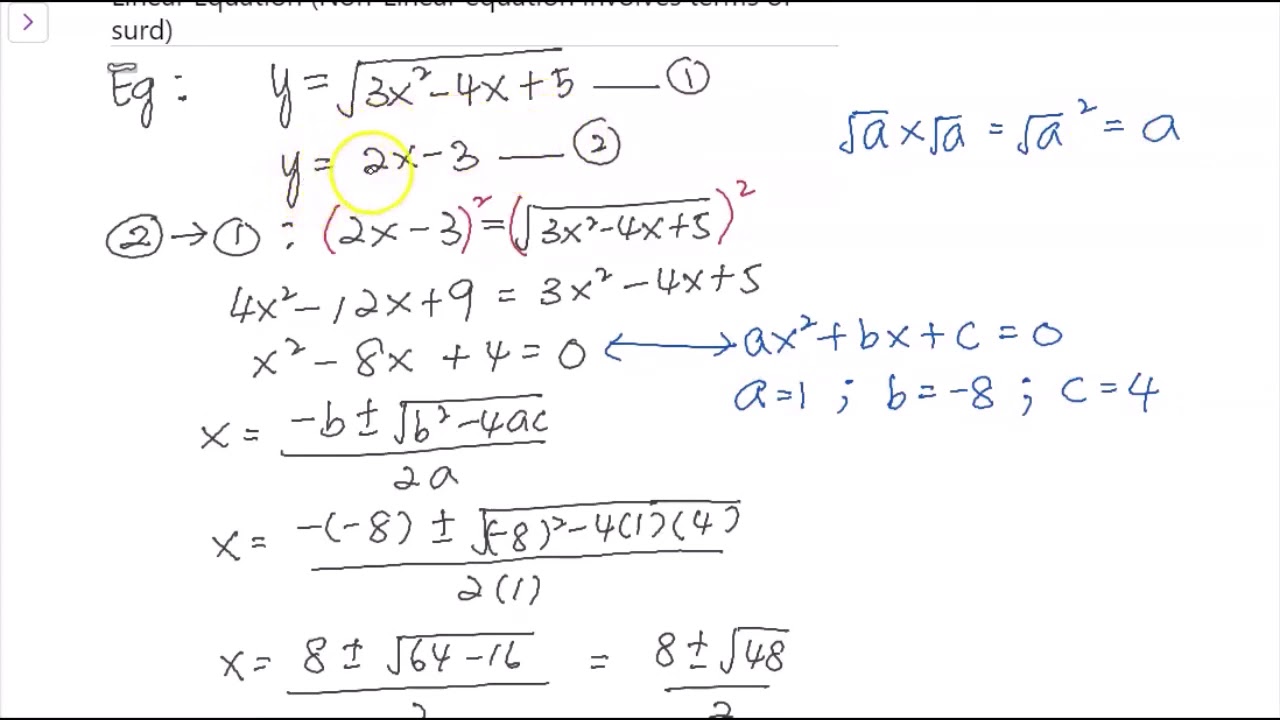 Linear Equation (Non-Linear equation involves terms of
surd)
Eg : y = √(3x² - 4x + 5) —— ①
y = 2x - 3 —— ②
√a × √a = √a² = a
② → ① : (2x - 3)² = (√(3x² - 4x + 5))²
4x² - 12x + 9 = 3x² - 4x + 5
x² - 8x + 4 = 0 ↔ ax² + bx + c = 0
a = 1 ; b = -8 ; c = 4
x = (-b ± √(b² - 4ac)) / 2a
x = (-(-8) ± √((-8)² - 4(1)(4))) / 2(1)
x = (8 ± √(64 - 16)) / 2 = (8 ± √48) / 2